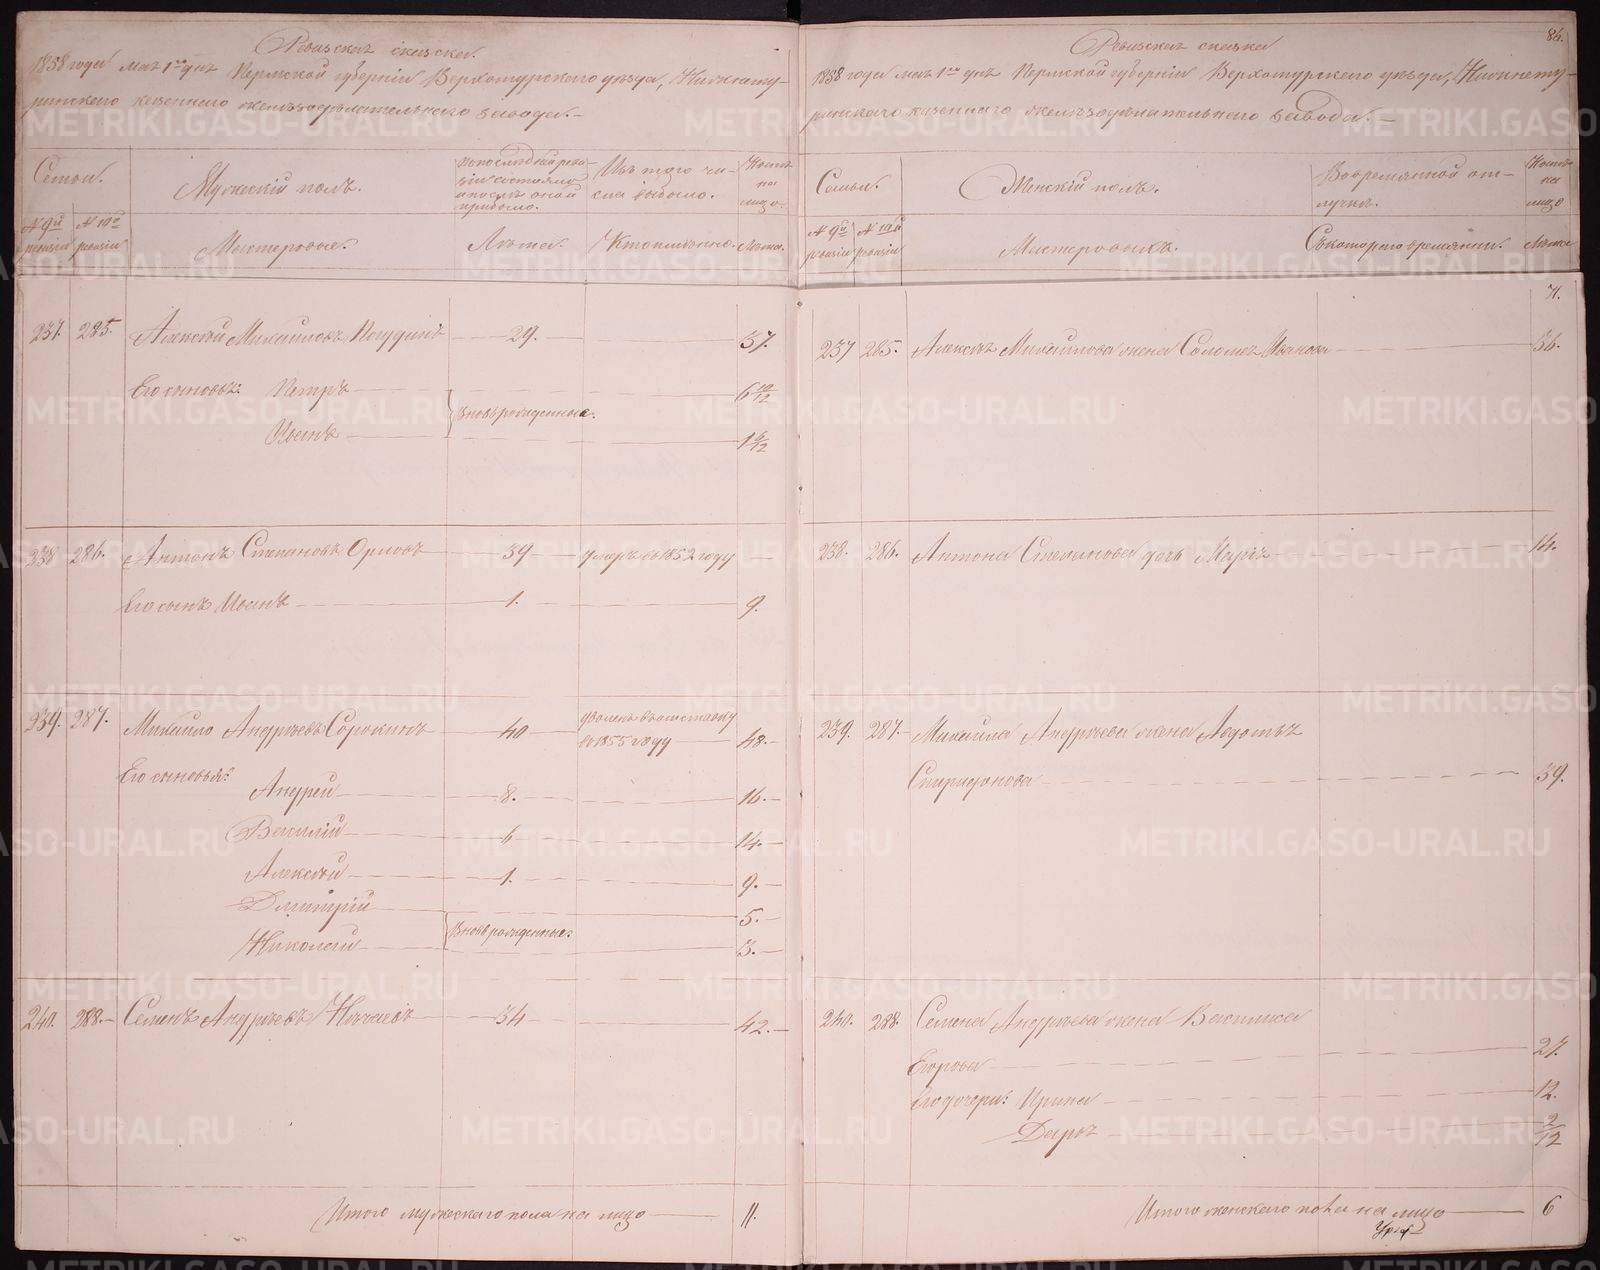 Ревизская сказка.
1858 года мая 1го дня Пермской губерніи Верхотурскаго уѣзда, Нижнету-
ринскаго казеннаго желѣзодѣлательнаго завода.-
Семьи.
Мужескій полъ.
По послѣдней реви-
зіи состояло
и послѣ оной
прибыло.
Изъ того чи-
сла выбыло.
Нынѣ
на
лицо.
№ 9й
ревизіи
№ 10й
ревизіи
Мастеровые.
Лѣта.
Когда именно.
Лѣта.
237. 285. Алексѣй Михайловъ Погудинъ 29. 37.
Его сыновья: Петръ 6 10/12
Вновь рожденные.
Иванъ 1 6/12
238 286. Антонъ Степановъ Орловъ 39 умеръ въ 1852 году
Его сынъ Иванъ 1. 9.
239. 287. Михайло Андреевъ Сорокинъ 40 уволенъ въ отставку
въ 1855 году 48.-
Его сыновья:
Андрей 8. 16.-
Василій 6 14.-
Алексѣй 1. 9.-
Дмитрій 5.-
Вновь рожденные:
Николай 3.-
240. 288.- Семенъ Андреевъ Нечаевъ 34 42.-
Итого мужескаго пола на лицо 11.
86.
Ревизская сказка
1858 года мая 1го дня Пермской губерніи Верхотурскаго уѣзда, Нижнету-
ринскаго казеннаго желѣзодѣлательнаго завода.-
Семьи.
Женскій полъ.
Во временной от-
лучкѣ.
Нынѣ
на
лицо
№ 9й
ревизіи
№ 10й
ревизіи
Мастеровыхъ.
Съ котораго времяни.
Лѣта
71.
237 285. Алексѣя Михайлова жена Соломея Иванова 36.
238. 286. Антона Степанова дочь Марья 14.
239. 287.- Михайла Андреева жена Авдотья
Спиридонова 39.
240. 288. Семена Андреева жена Василиса
Егорова 27.
Его дочери: Ирина 12.
Дарья 2/12
Итого женскаго пола на лицо 6
METRIKI.GASO-URAL.RU